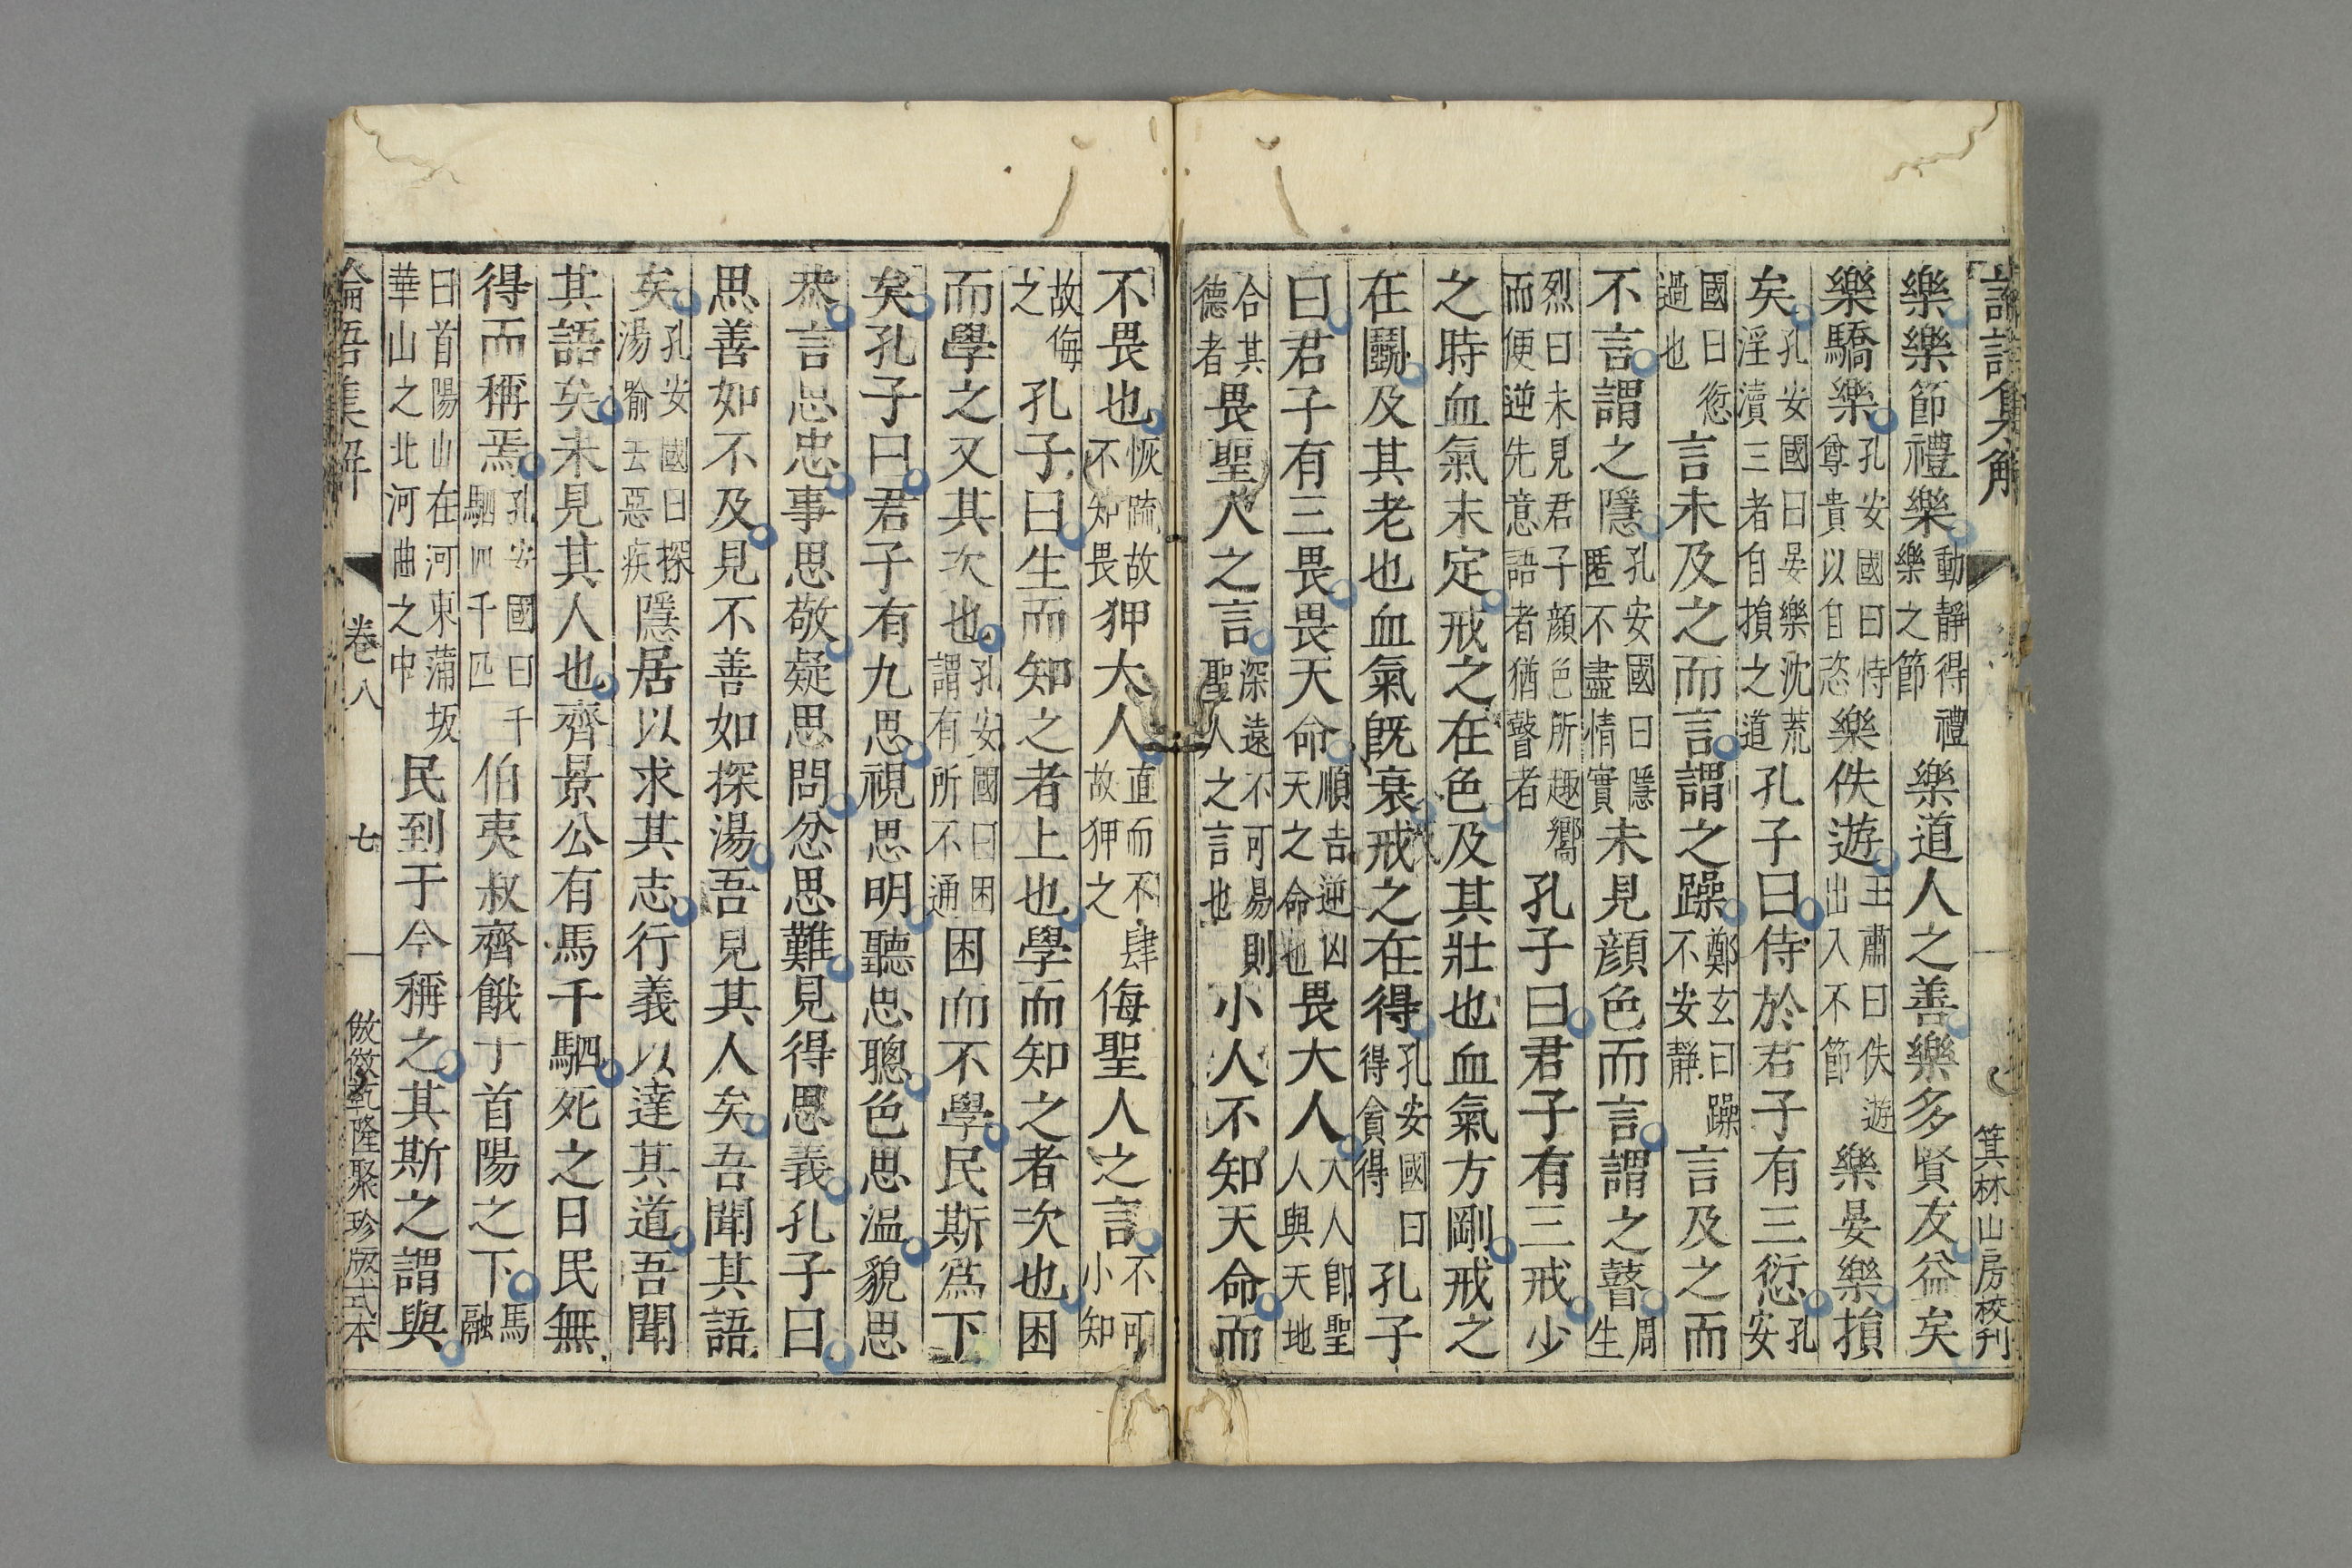 論語集解 箕林山房校刋
樂樂節禮樂動靜得禮樂之節樂道人之善樂多賢友益矣
樂驕樂孔安國曰恃尊貴以自恣樂佚遊王肅曰佚遊出入不節樂晏樂損
矣孔安國曰晏樂沈荒淫瀆三者自損之道孔子曰侍於君子有三愆孔安
國曰愆過也言未及之而言謂之躁鄭玄曰躁不安靜言及之而
不言謂之隱孔安國曰隱匿不盡情實未見顔色而言謂之瞽周生
烈曰未見君子顔色所趣嚮而便逆先意語者猶瞽者孔子曰君子有三戒少
之時血氣未定戒之在色及其壯也血氣方剛戒之
在鬭及其老也血氣旣衰戒之在得孔安國曰得貪得孔子
曰君子有三畏畏天命順吉逆凶天之命也畏大人大人卽聖人與天地
合其德者畏聖人之言深遠不可易則聖人之言也小人不知天命而
不畏也恢疏故不知畏狎大人直而不肆故狎之侮聖人之言不可小知
故侮之孔子曰生而知之者上也學而知之者次也困
而學之又其次也孔安國曰困謂有所不通困而不學民斯爲下
矣孔子曰君子有九思思視思明聽思聰色思溫貌思
恭言思忠事思敬疑思問忿思難見得思義孔子曰
思善如不及見不善如探湯吾見其人矣吾聞其語
矣孔安國曰探湯喻去惡疾隱居以求其志行義以達其道吾聞
其語矣未見其人也齊景公有馬千駟死之日民無
得而稱焉孔安國曰千駟四千匹伯夷叔齊餓于首陽之下馬融
曰首陽山在河東蒲坂華山之北河曲之中民到于今稱之其斯之謂與
論語集解 卷八 七 倣乾隆聚珍版式本